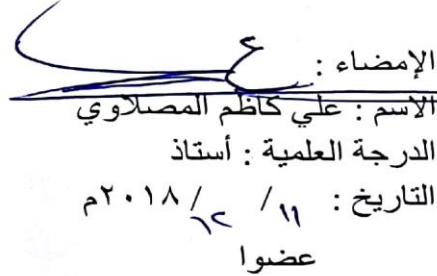 الإمضاء :
الاسم : علي كاظم المصلاوي
الدرجة العلمية : أستاذ
التاريخ : ١١ / ١٢ / ٢٠١٨م
عضوا